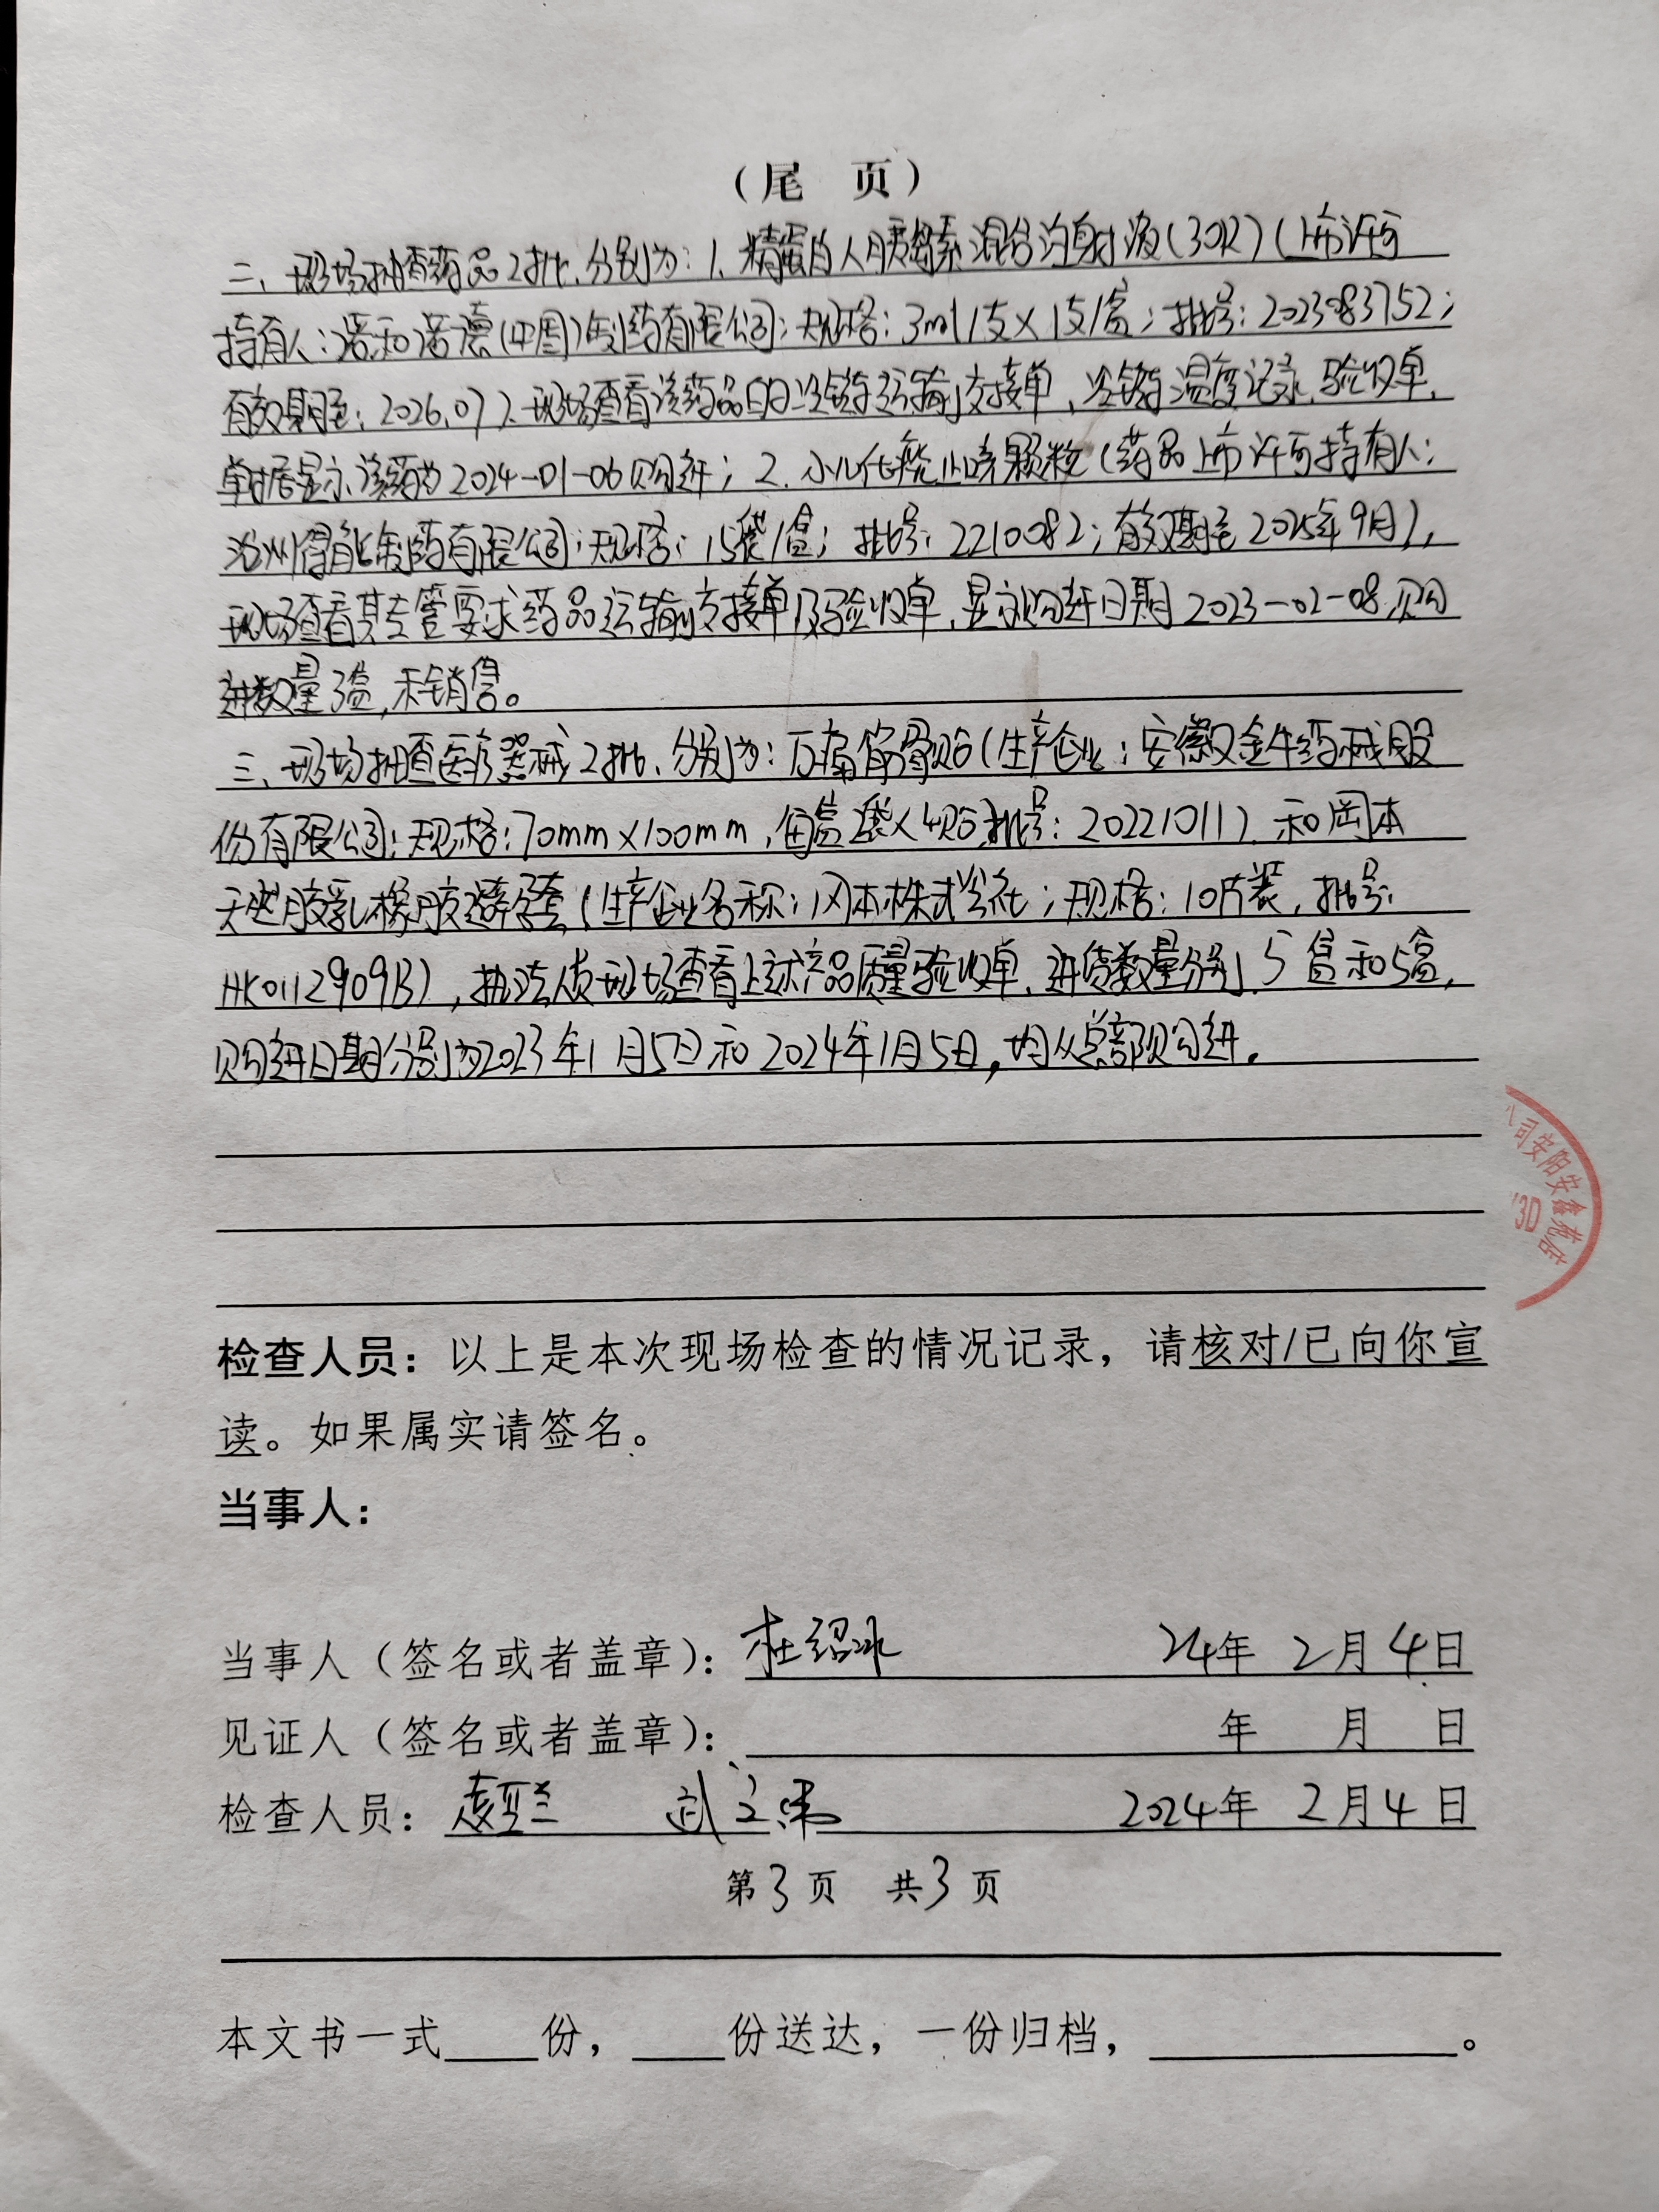 （尾　页）
二、现场抽查药品2批，分别为：1. 精蛋白人胰岛素混合注射液(30R)（上市许可
持有人：诺和诺德(中国)制药有限公司；规格：3ml/支×1支/盒；批号：2023083752；
有效期至：2026.07）、现场查看该药品的冷链运输交接单、冷链温度记录、验收单，
单据显示该药为2024-01-06购进；2. 小儿化痰止咳颗粒（药品上市许可持有人：
沧州得能制药有限公司；规格：15袋/盒；批号：2210082；有效期至2025年9月），
现场查看其专管要求药品运输交接单及验收单，显示购进日期2023-02-08，购
进数量3盒，未销售。
三、现场抽查医疗器械2批，分别为：万痛筋骨贴（生产企业：安徽汉金牛药械股
份有限公司；规格：70mm×100mm，每盒2袋×4贴，批号：20221011）和冈本
天然胶乳橡胶避孕套（生产企业名称：冈本株式会社；规格：10片装，批号：
HK0112909B），执法人员现场查看上述产品质量验收单，进货数量分别5盒和5盒，
购进日期分别为2023年1月5日和2024年1月5日，均从总部购进。
公司安阳安鑫苑店
检查人员：以上是本次现场检查的情况记录，请核对/已向你宣
读。如果属实请签名。
当事人：
当事人（签名或者盖章）：杜绍冰 24年 2月 4日
见证人（签名或者盖章）： 年 月 日
检查人员： 2024年 2月 4日
第3页 共3页
本文书一式____份，____份送达，一份归档，____________。